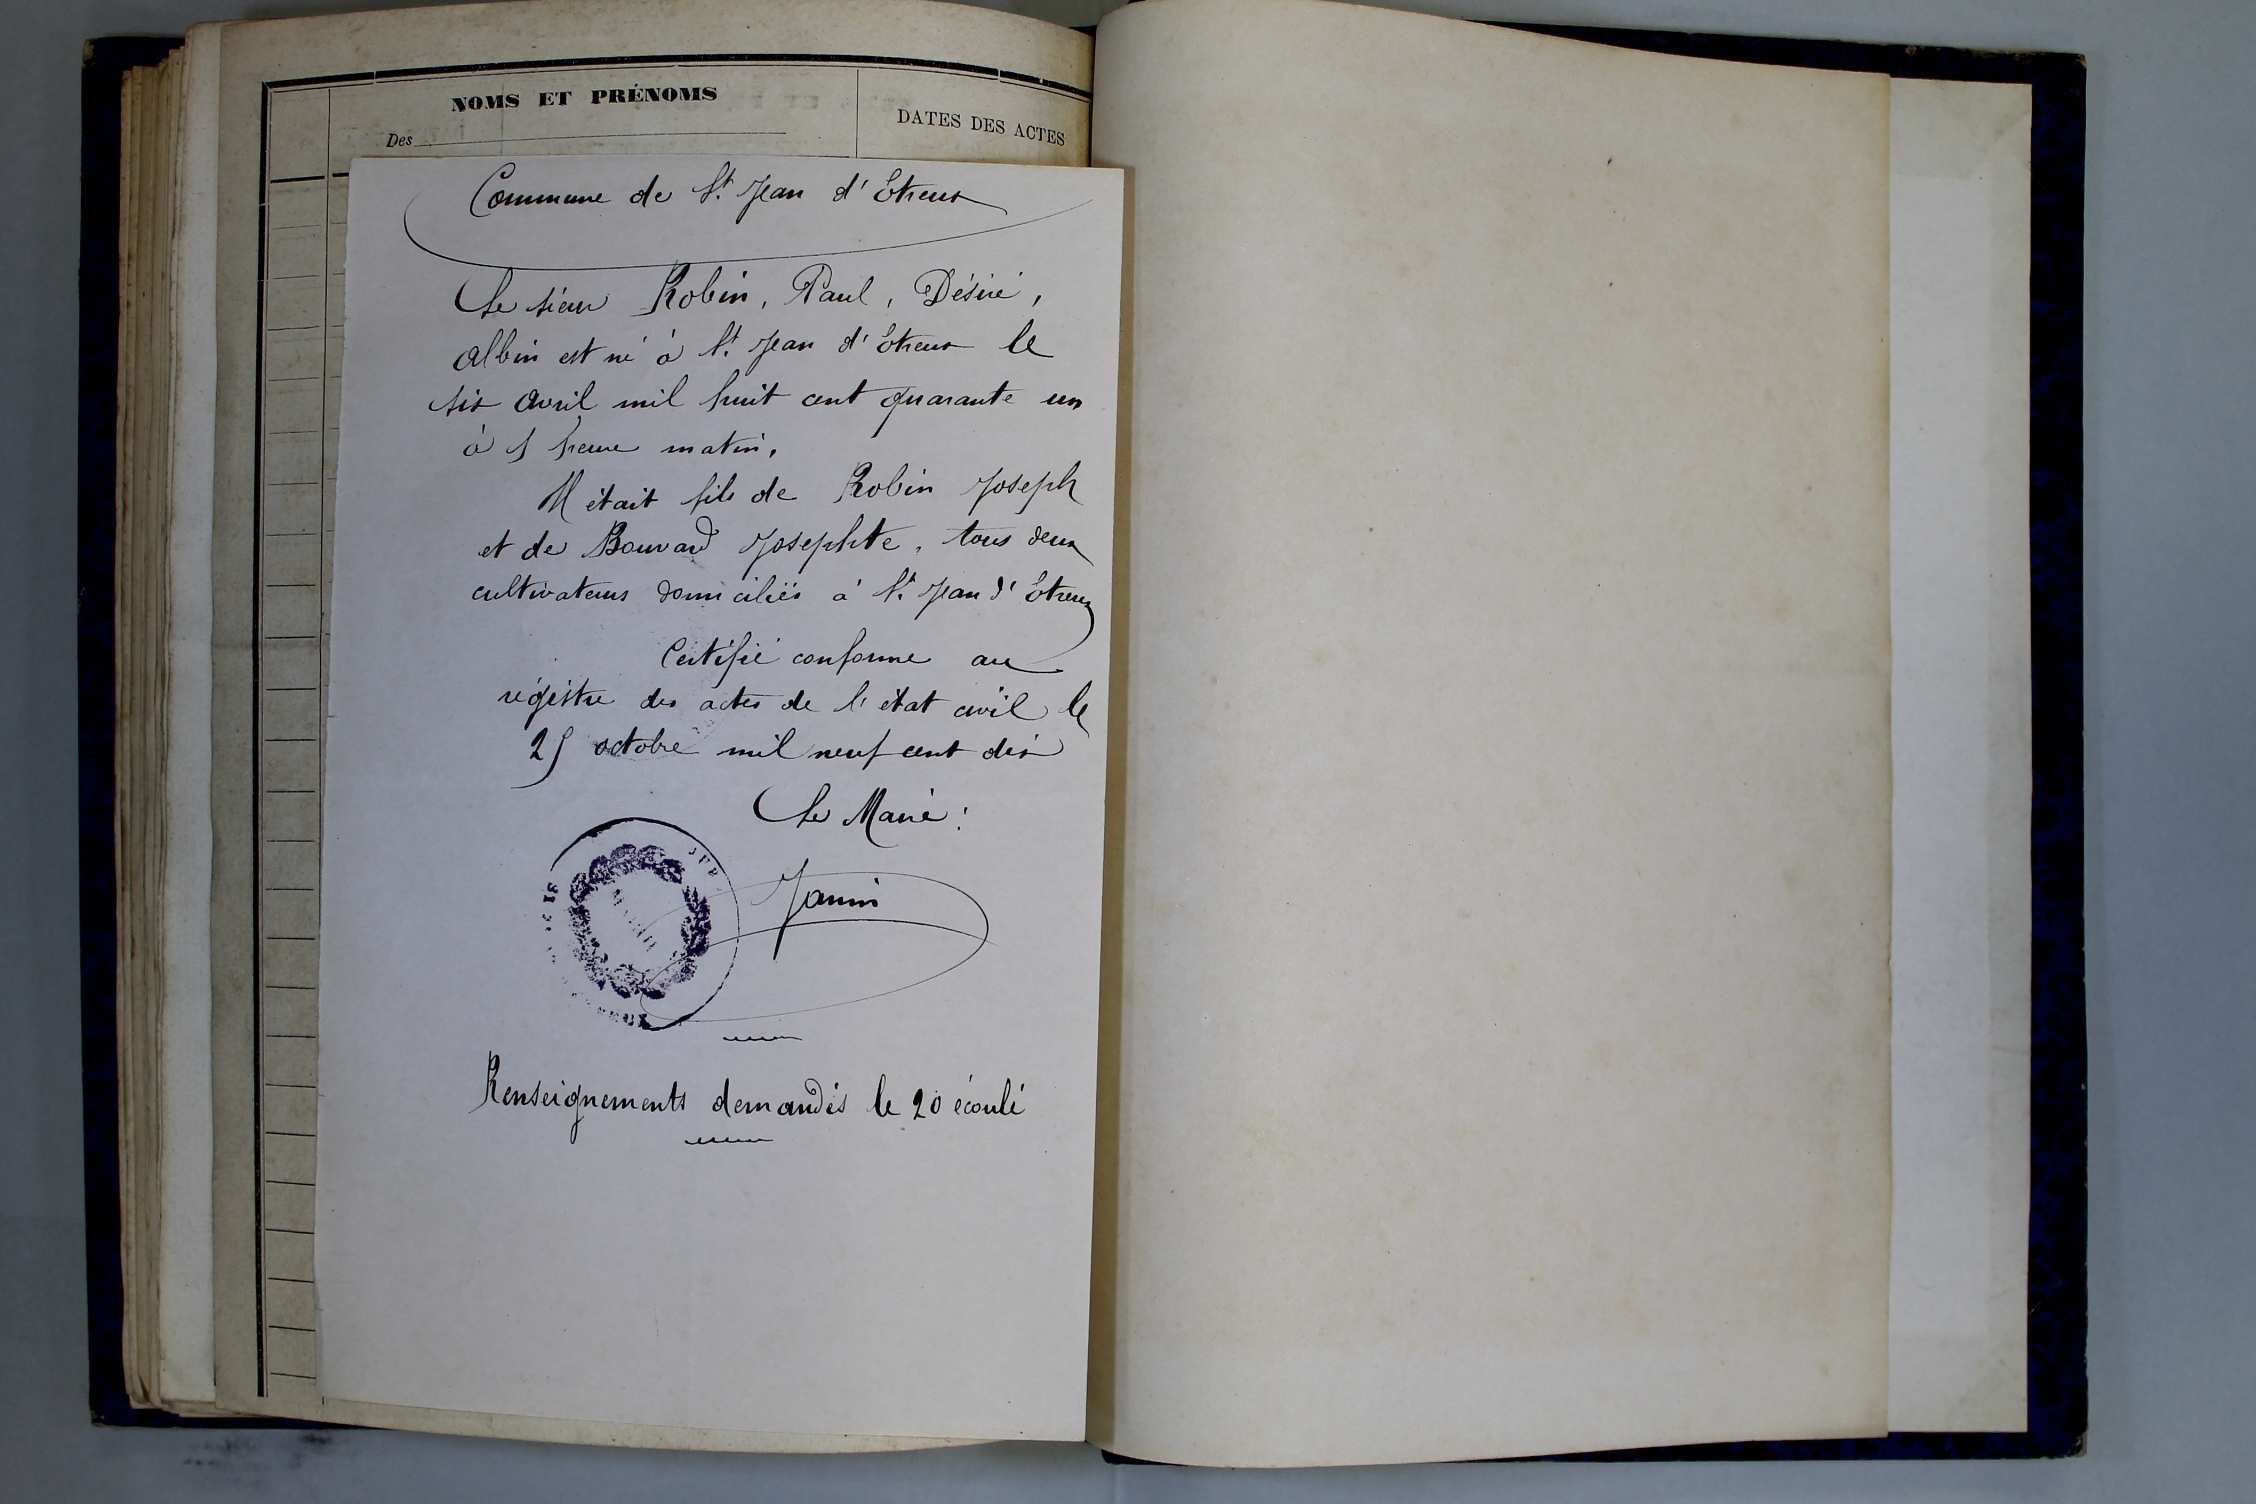 NOMS ET PRÉNOMS
Des
DATES DES ACTES
Commune de St. Jean d'Etreux
Le sieur Robin, Paul, Désiré,
Albin est né à St. Jean d'Etreux le
six avril mil huit cent quarante un
à 1 heure matin.
Il était fils de Robin Joseph
et de Bouvard Josephte, tous deux
cultivateurs domiciliés à St. Jean d'Etreux
Certifié conforme au
régistre des actes de l'état civil le
25 octobre mil neuf cent dix
Le Maire:
Janin
JURA
MAIRIE
Renseignements demandés le 20 écoulé